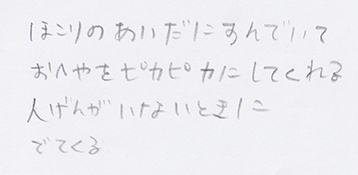 ほこりのあいだにすんでいて
おへやをピカピカにしてくれる
人げんがいないときに
でてくる